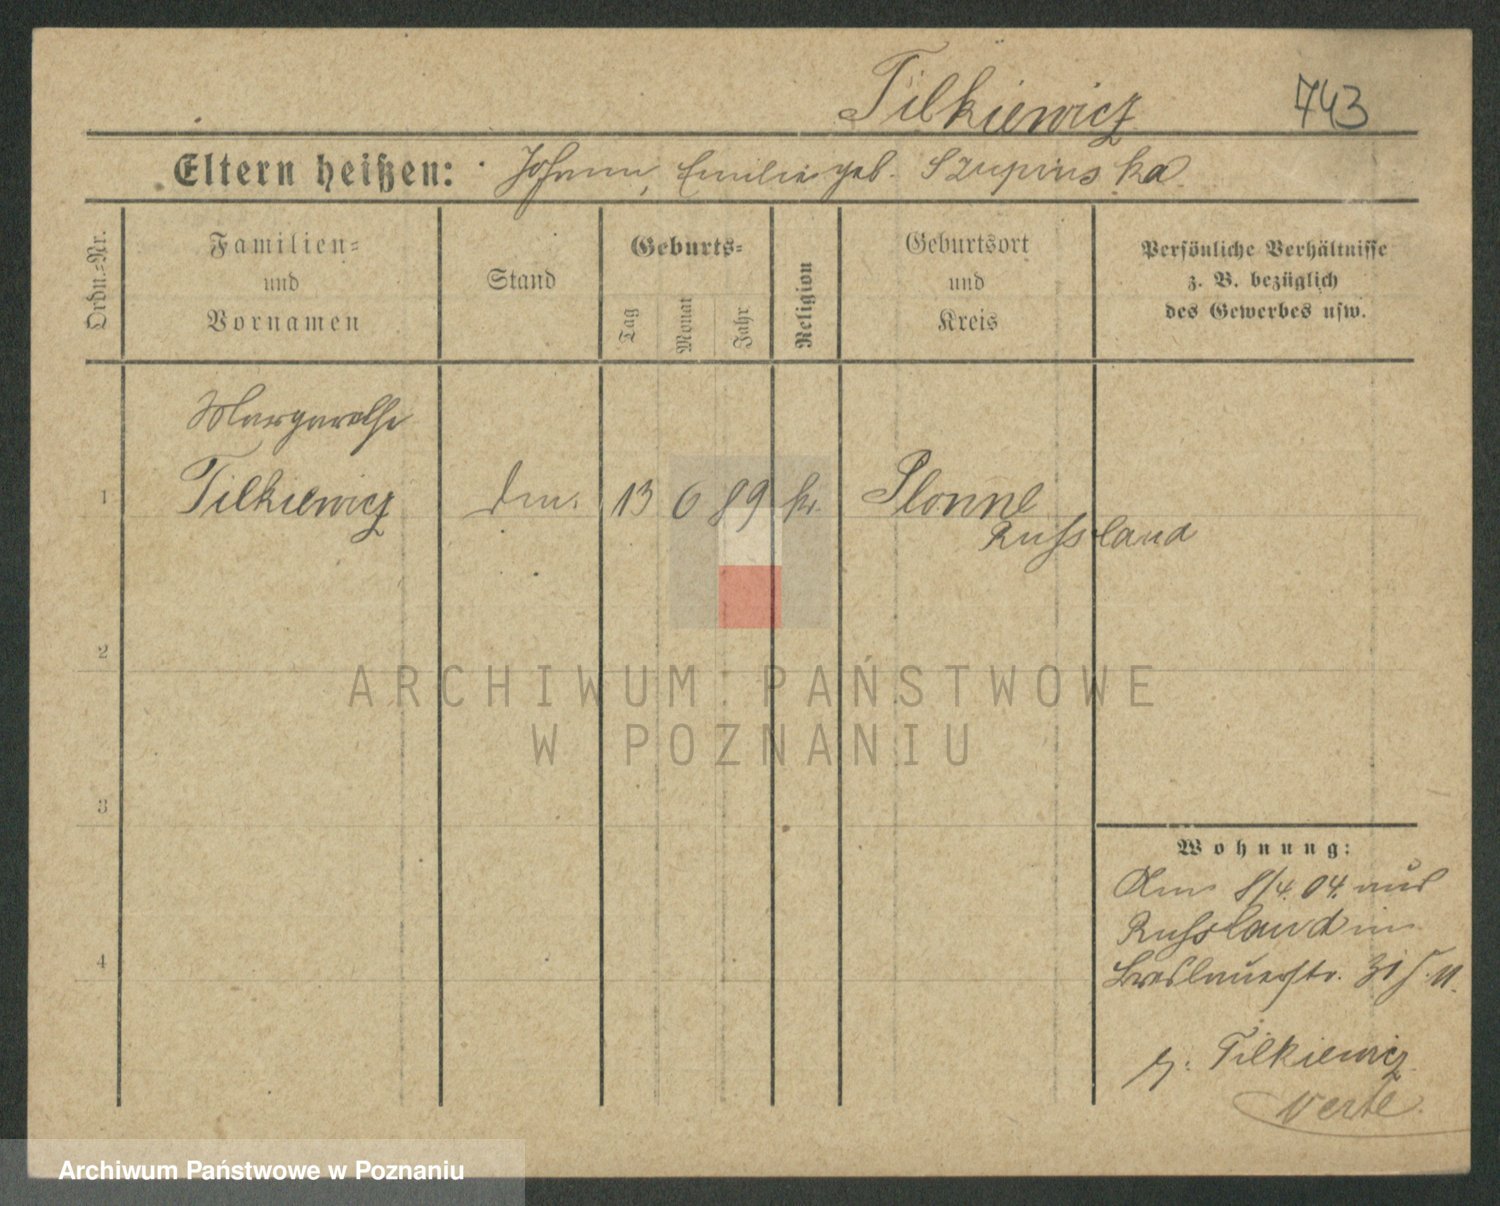 Tilkiewicz
743
Eltern heißen: Johann, Emilie geb. Szupinska
Ordn.=Nr.
Familien=
und
Vornamen
Stand
Geburts=
Tag
Monat
Jahr
Religion
Geburtsort
und
Kreis
Persönliche Verhältnisse
z. B. bezüglich
des Gewerbes usw.
Margarethe
1 Tilkiewicz 13 6 89 k. Plonne
Russland
2
3
4
ARCHIWUM PAŃSTWOWE
W POZNANIU
Wohnung:
8/4.04. aus
Russland in
Breslauerstr. 31
b. Tilkiewicz
verte
Archiwum Państwowe w Poznaniu